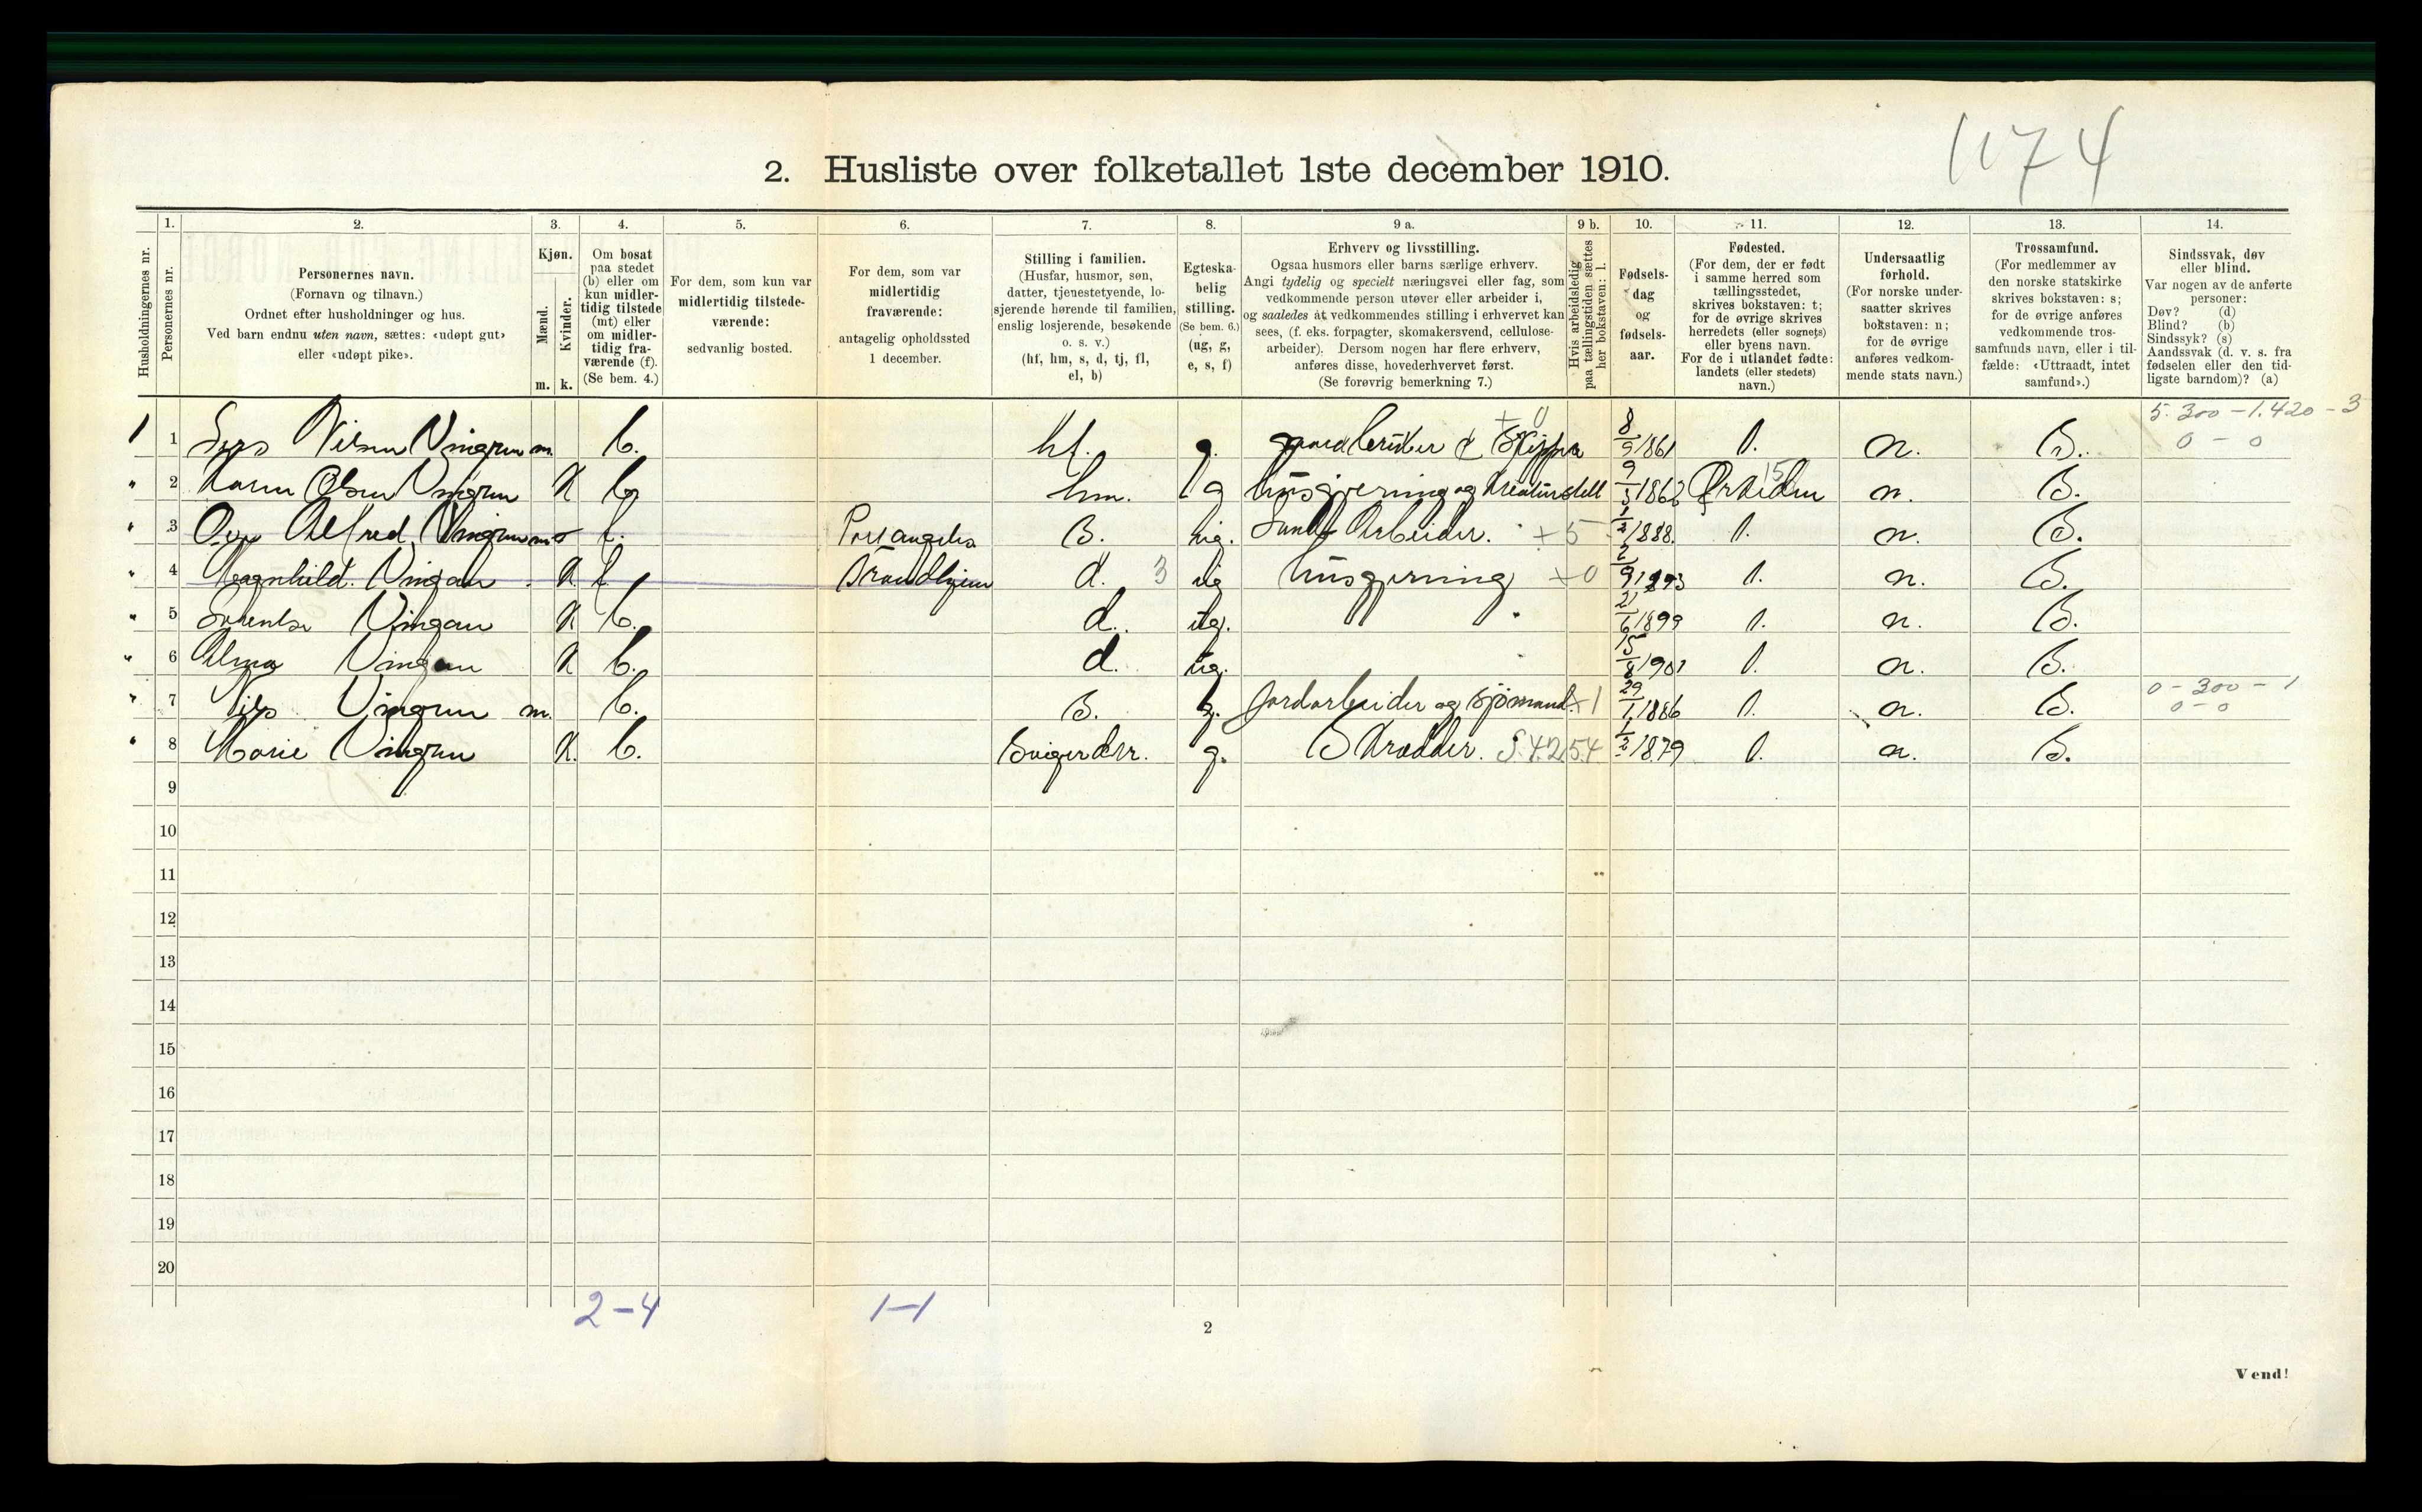 1174
2. Husliste over folketallet 1ste december 1910.
Husholdningernes nr.
1.
Personernes nr.
2.
Personernes navn.
(Fornavn og tilnavn.)
Ordnet efter husholdninger og hus.
Ved barn endnu uten navn, sættes: «udøpt gut»
eller «udøpt pike».
3.
Kjøn.
Mænd.
Kvinder.
m. k.
4.
Om bosat
paa stedet
(b) eller om
kun midler-
tidig tilstede
(mt) eller
om midler-
tidig fra-
værende (f).
(Se bem. 4.)
5.
For dem, som kun var
midlertidig tilstede-
værende:
sedvanlig bosted.
6.
For dem, som var
midlertidig
fraværende:
antagelig opholdssted
1 december.
7.
Stilling i familien.
(Husfar, husmor, søn,
datter, tjenestetyende, lo-
sjerende hørende til familien,
enslig losjerende, besøkende
o. s. v.)
(hf, hm, s, d, tj, fl,
el, b)
8.
Egteska-
belig
stilling.
(Se bem. 6.)
(ug, g,
e, s, f)
9 a.
Erhverv og livsstilling.
Ogsaa husmors eller barns særlige erhverv.
Angi tydelig og specielt næringsvei eller fag, som
vedkommende person utøver eller arbeider i,
og saaledes at vedkommendes stilling i erhvervet kan
sees, (f. eks. forpagter, skomakersvend, cellulose-
arbeider). Dersom nogen har flere erhverv,
anføres disse, hovederhvervet først.
(Se forøvrig bemerkning 7.)
9 b.
Hvis arbeidsledig
paa tællingstiden sættes
her bokstaven: l.
10.
Fødsels-
dag
og
fødsels-
aar.
11.
Fødested.
(For dem, der er født
i samme herred som
tællingsstedet,
skrives bokstaven: t;
for de øvrige skrives
herredets (eller sognets)
eller byens navn.
For de i utlandet fødte:
landets (eller stedets)
navn.)
12.
Undersaatlig
forhold.
(For norske under-
saatter skrives
bokstaven: n;
for de øvrige
anføres vedkom-
mende stats navn.)
13.
Trossamfund.
(For medlemmer av
den norske statskirke
skrives bokstaven: s;
for de øvrige anføres
vedkommende tros-
samfunds navn, eller i til-
fælde: «Uttraadt, intet
samfund».)
14.
Sindssvak, døv
eller blind.
Var nogen av de anførte
personer:
Døv? (d)
Blind? (b)
Sindssyk? (s)
Aandssvak (d. v. s. fra
fødselen eller den tid-
ligste barndom)? (a)
5. 300 - 1.420 - 3
0 - 0
1 1 Vingan m. b. hf. g. 8/9 1861 t. n. S.
" 2 Olsen Vingan k b hm. g husgjerning og Kreaturstell 9/3 n. S.
" 3 Alfred Vingan m f. S. ug. Arbeider. + 5 1/2 1888. t. n. S.
" 4 Magnhild. Vingan k f Trondhjem d. 3 ug husgjerning + 0 t. n. S.
" 5 Vingan k b. d. ug. 21/6 1899 t. n. S.
" 6 Alma Vingan k b. d. ug. 15/8 t. n. S.
0 - 300 - 1
0 - 0
" 7 Nils Vingan m. b. S. g. Jordarbeider og Sjømand. + 1 29/1 1886 t. n. S.
" 8 Marie Vingan k. b. Svigerdtr. g. Skrædder. 1/2 1879 t. n. S.
9
10
11
12
13
14
15
16
17
18
19
20
2-4 1-1
2
Vend!